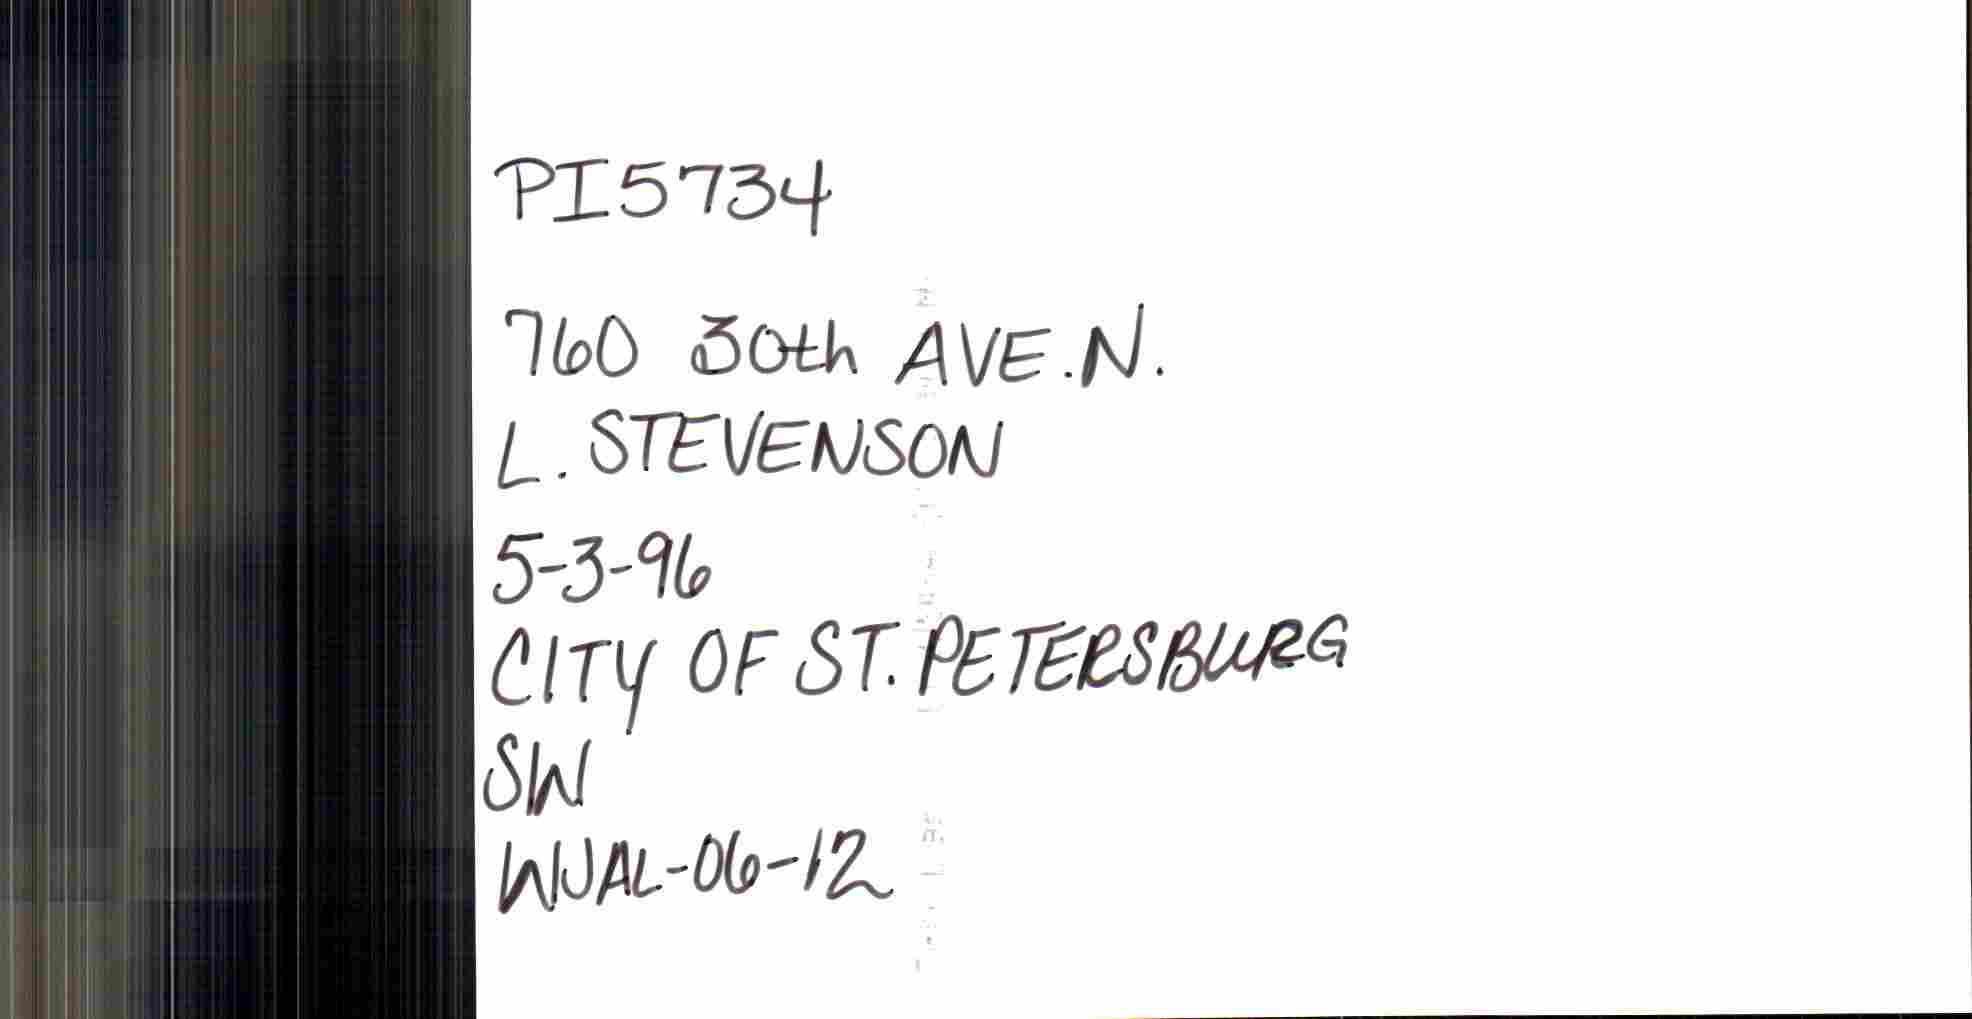 PI5734
760 30th AVE.N.
L. STEVENSON
5-3-96
CITY OF ST. PETERSBURG
SW
WJAL-06-12